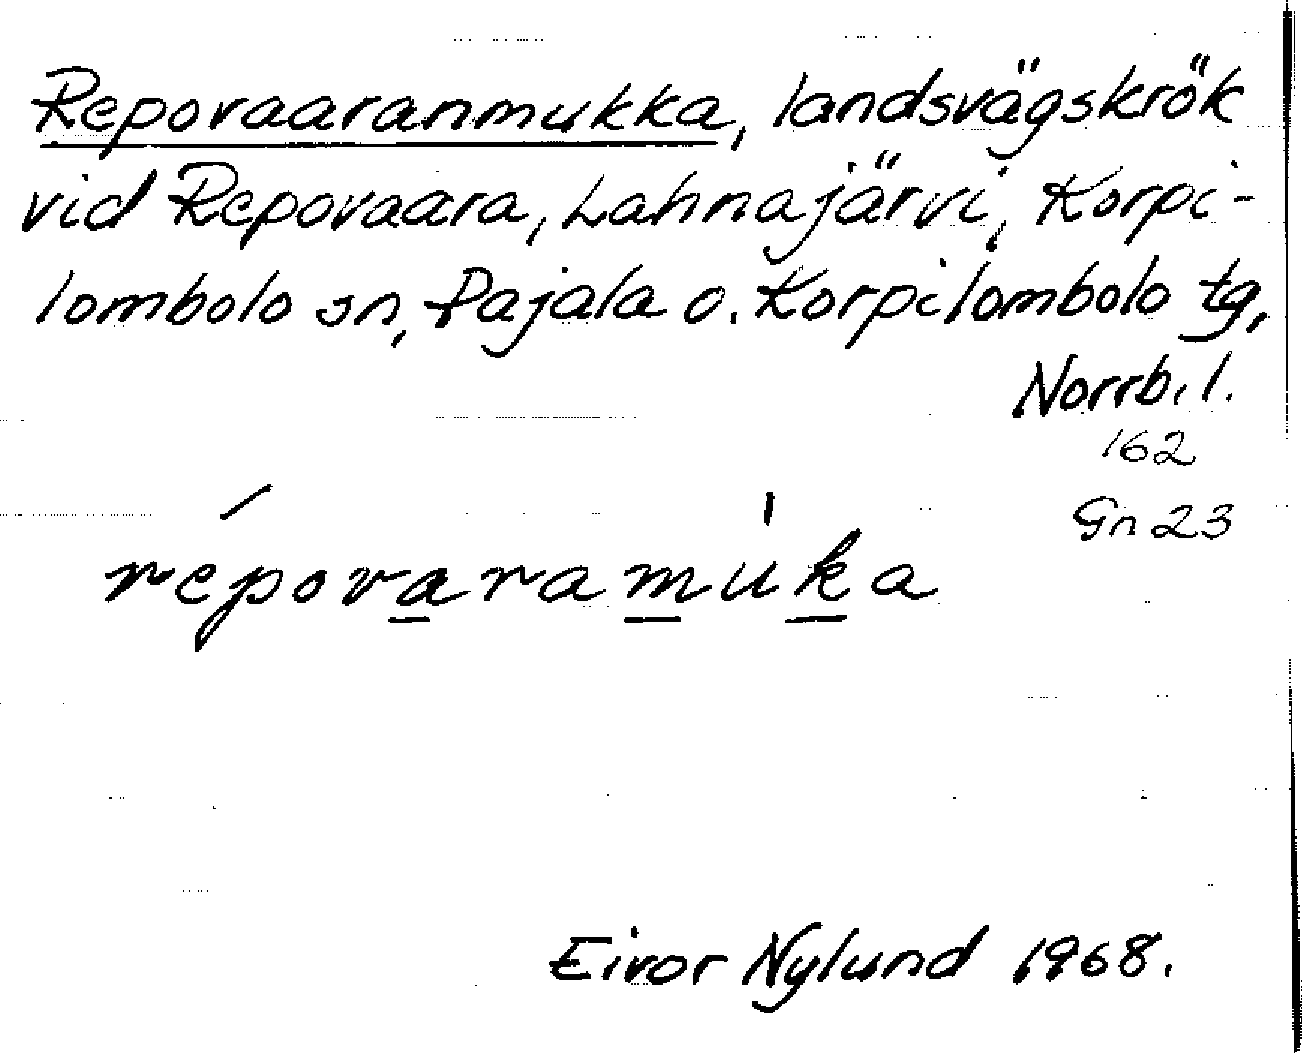 Repovaaranmukka, landsvägskrök
vid Repovaara, Lahnajärvi, Korpi-
lombolo sn, Pajala o. Korpilombolo tg,
Norrb. l.
162
Gn 23
répova̲ram̲uk̲a
Eivor Nylund 1968.